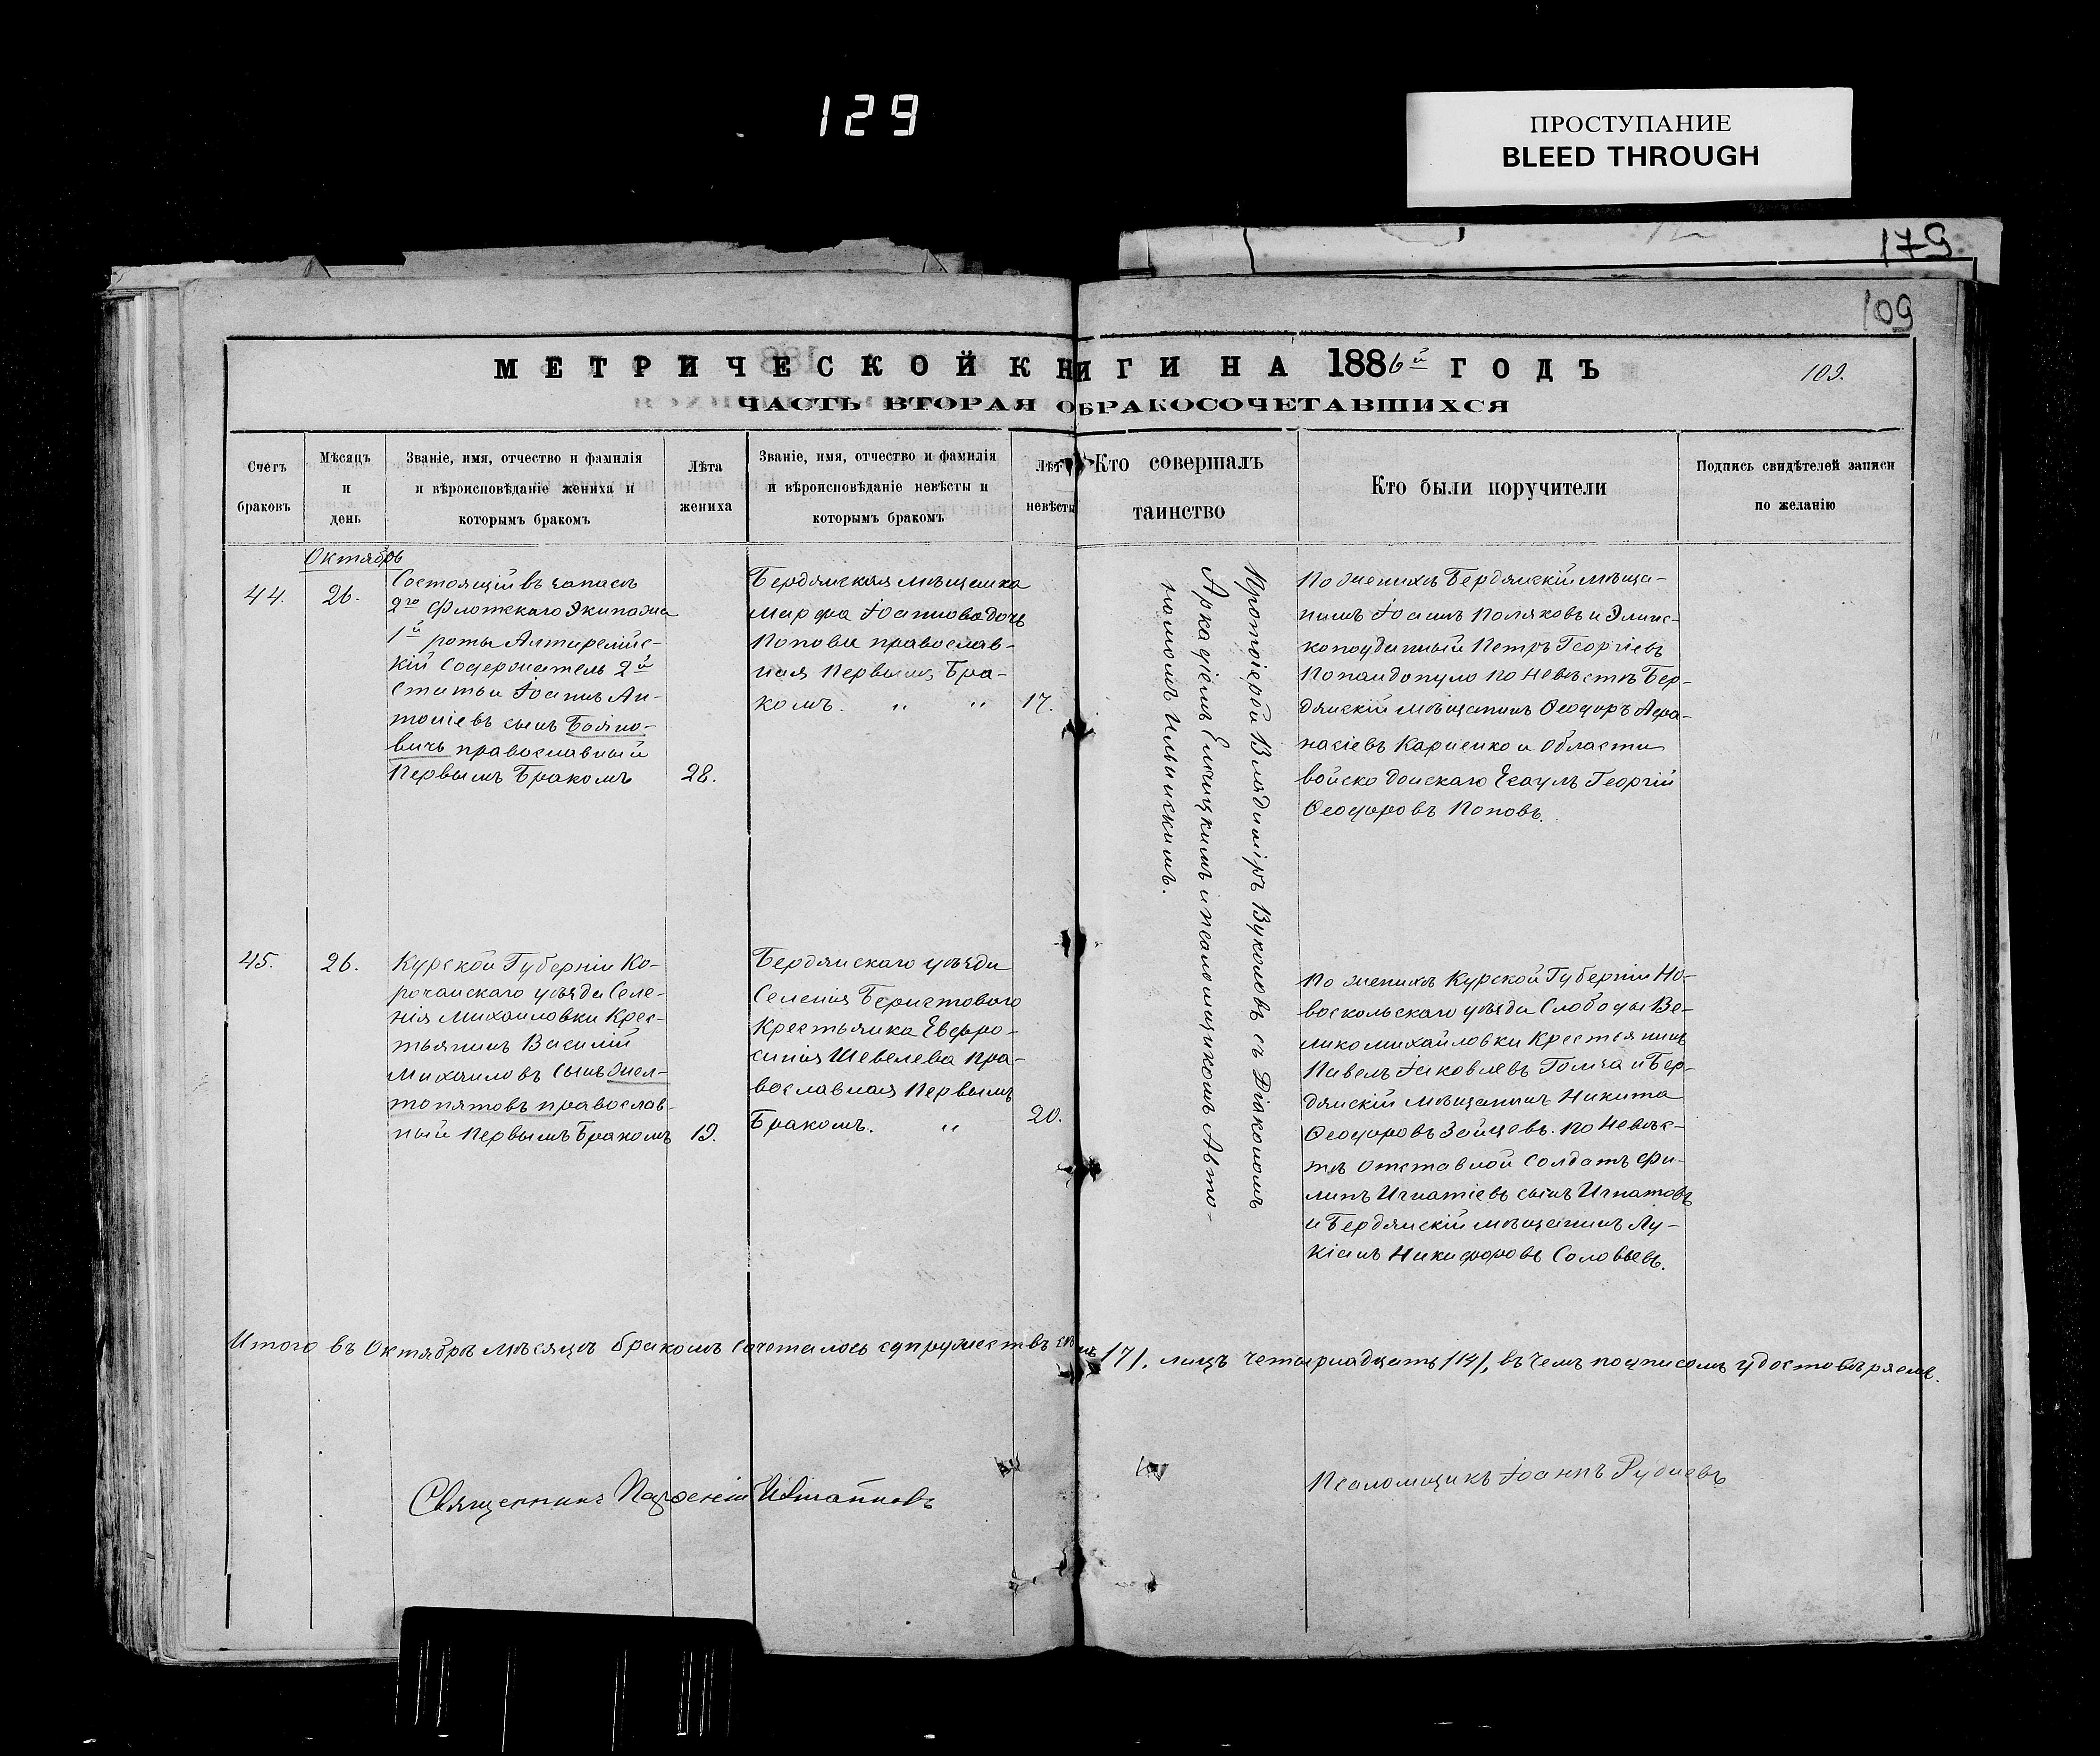 129
ПРОСТУПАНИЕ
BLEED THROUGH
179
109
МЕТРИЧЕСКОЙ КНИГИ НА 1886й ГОДЪ
109.
ЧАСТЬ ВТОРАЯ О БРАКОСОЧЕТАВШИХСЯ
Счетъ
браковъ
Мѣсяцъ
и
день
Званіе, имя, отчество и фамилія
и вѣроисповѣданіе жениха и
которымъ бракомъ
Лѣта
жениха
Званіе, имя, отчество и фамилія
и вѣроисповѣданіе невѣсты и
которымъ бракомъ
Лѣт
невѣсты
Кто совершалъ
таинство
Кто были поручители
Подпись свидѣтелей записи
по желанію
Октябрь
44.
26.
Состоящій въ запасѣ
2го Флотскаго Экипажа
1й роты
кій Содержатель 2й
статьи Іоаннъ Ан-
тоніевъ сынъ Бояно-
вичъ православный
Первымъ Бракомъ
28.
Бердянская мѣщанка
Марфа Іоаннова дочь
Попова православ-
ная Первымъ Бра-
комъ. „ „
17.
Протоіерей Владиміръ Вуколовъ съ Діакономъ
Аркадіемъ и псаломщикомъ Авто-
номомъ Ильинскимъ.
По женихѣ Бердянскій мѣща-
нинъ Іоаннъ Поляковъ и Элинс-
коподданный Петръ Георгіевъ
Попандопуло по невѣстѣ Бер-
дянскій мѣщанинъ Ѳеодоръ Аѳа-
насіевъ Карпенко и Области
войска Донскаго Есаулъ Георгій
Ѳеодоровъ Поповъ.
45.
26.
Курской Губерніи Ко-
рочанскаго уѣзда Селе-
нія Михаиловки Крес-
тьянинъ Василій
Михаиловъ сынъ Жел-
топятовъ православ-
ный Первымъ Бракомъ
19.
Бердянскаго уѣзда
Селенія Берестового
Крестьянка Евфро-
синія Шевелева Пра-
вославная Первымъ
Бракомъ. „
20.
По женихѣ Курской Губерніи Но-
воскольскаго уѣзда Слободы Ве-
ликомихайловки Крестьянинъ
Павелъ Іаковлевъ и Бер-
дянскій мѣщанинъ Никита
Ѳеодоровъ Зайцевъ. По Невѣс-
тѣ отставной солдатъ Фи-
липъ Игнатіевъ сынъ Игнатовъ
и Бердянскій мѣщанинъ Лу-
кіанъ Никифоровъ Соловьевъ.
Итого въ Октябрѣ мѣсяцѣ бракомъ сочеталось супружествъ семь /7/, лицъ четырнадцать /14/, въ чемъ подписомъ удостовѣряемъ.
Священникъ
Псаломщикъ Іоаннъ